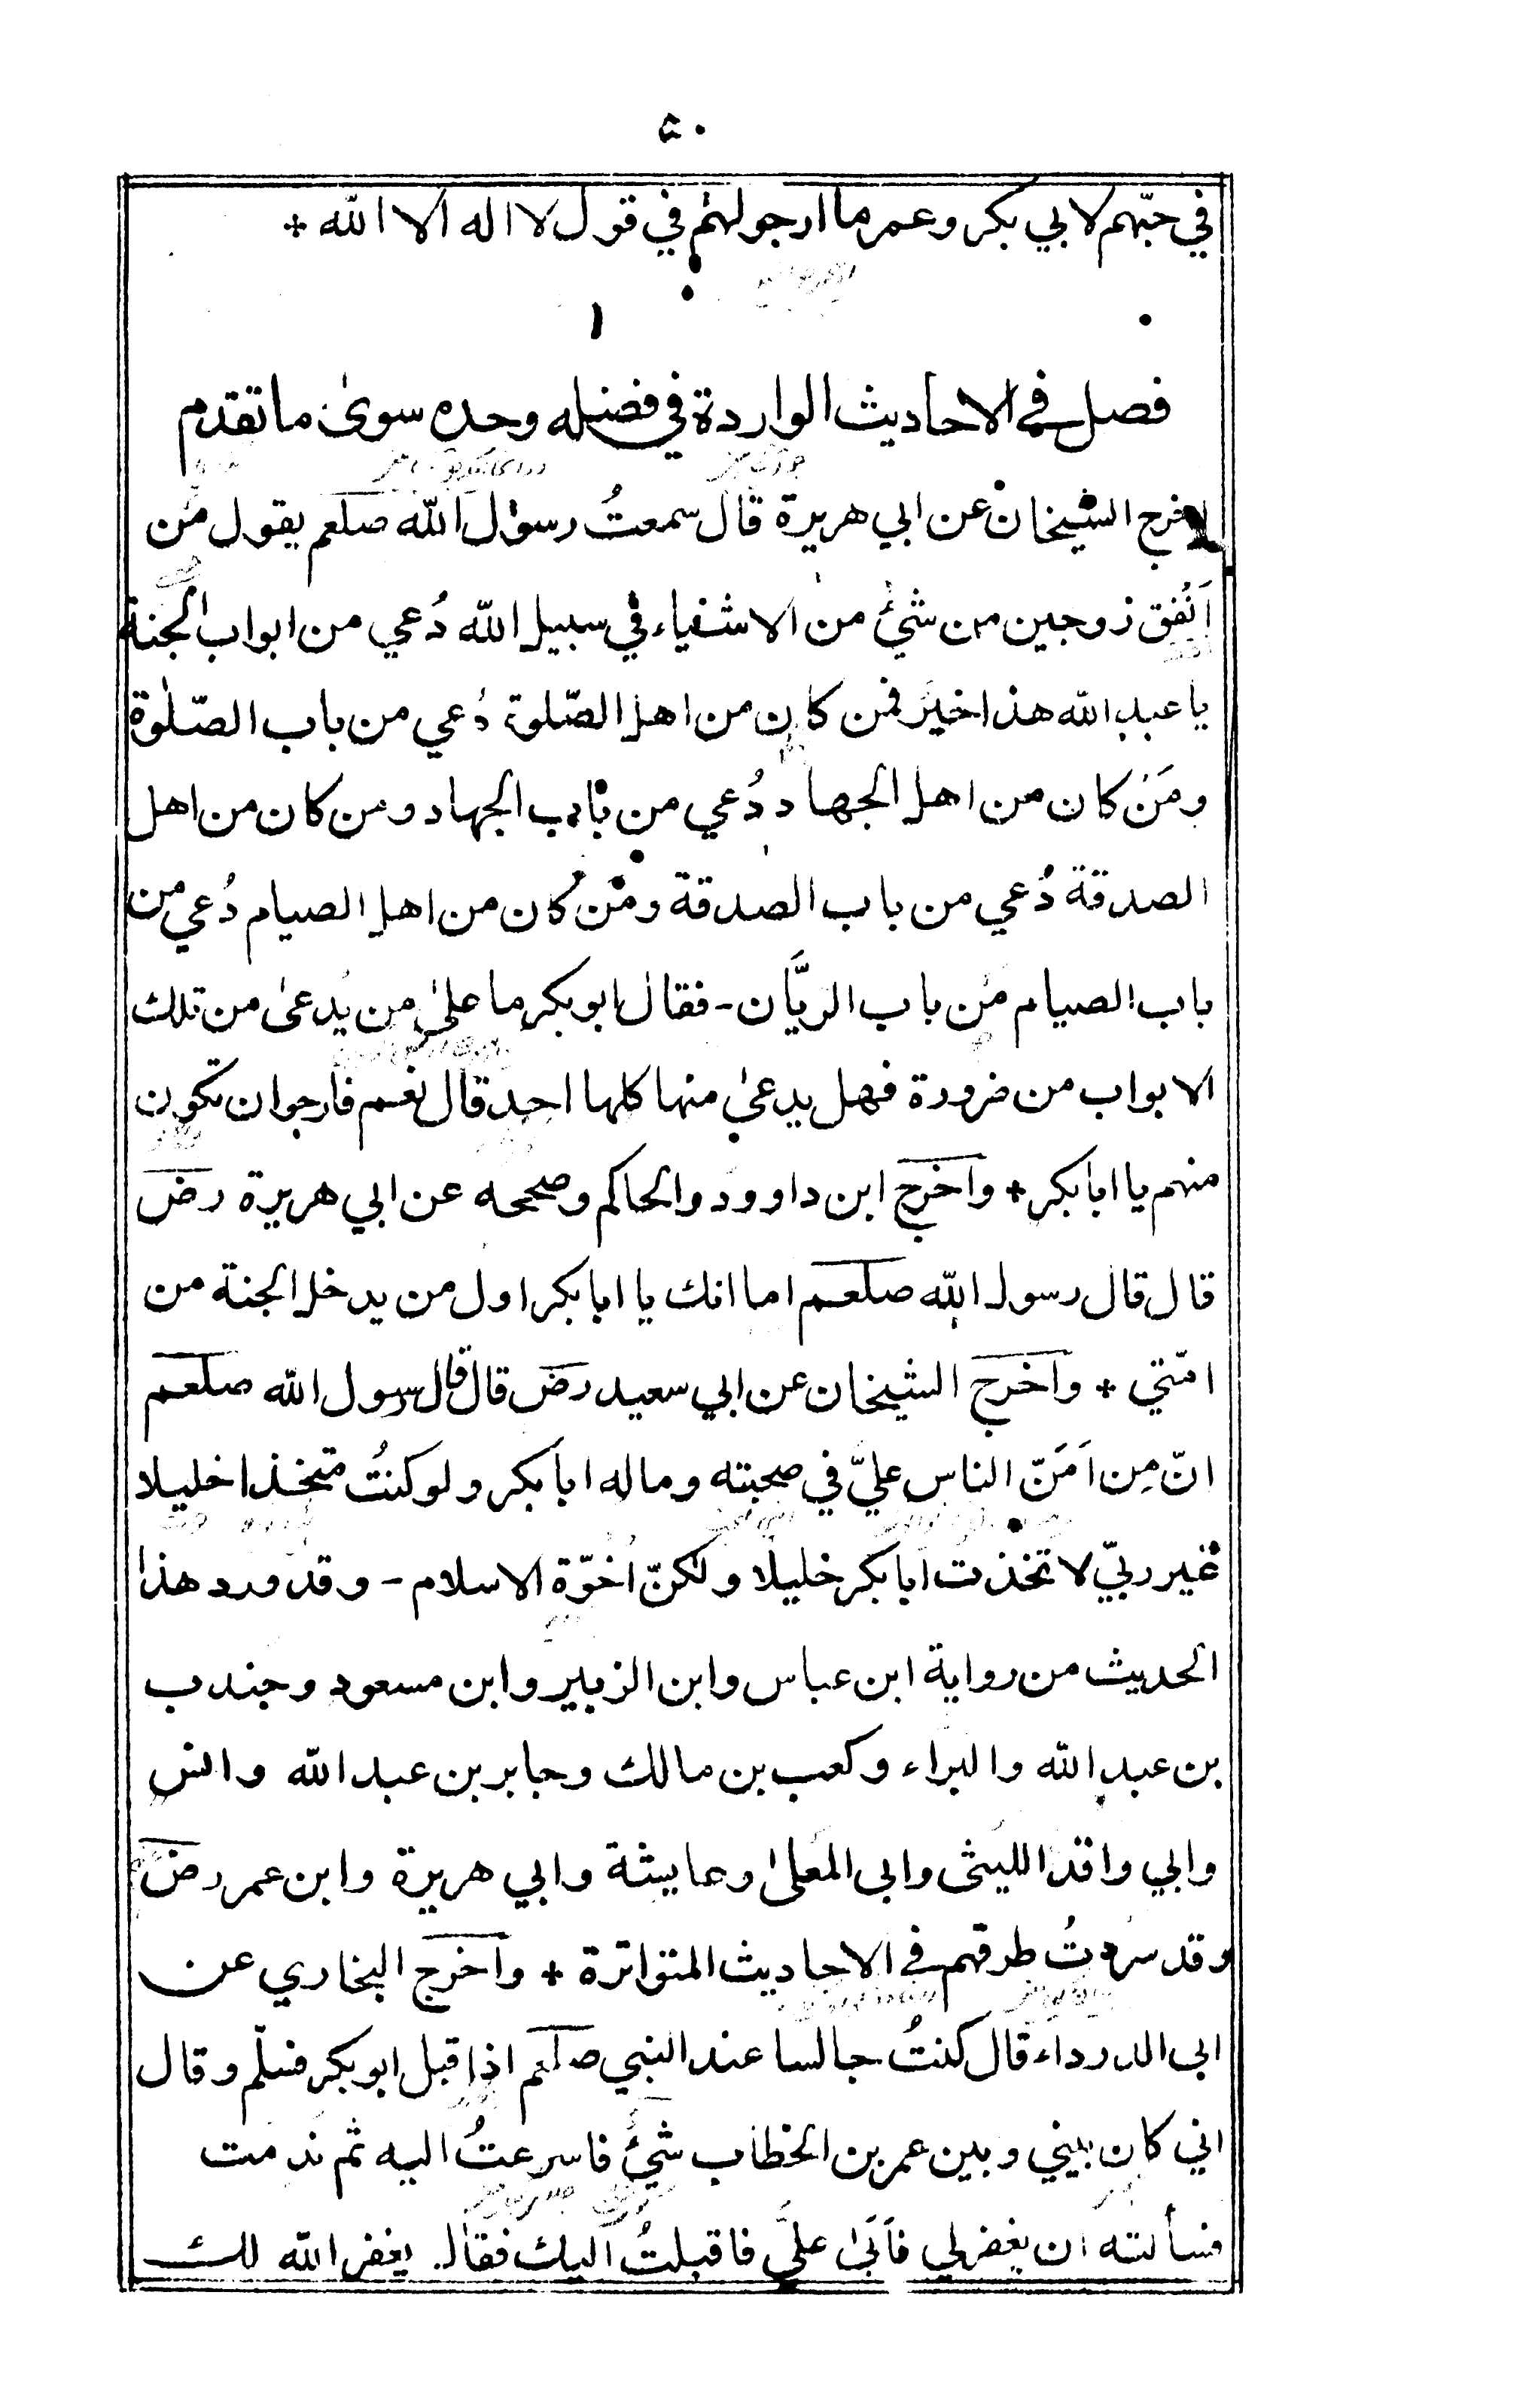 ٥٠
في حبّهم لابي بكر وعمر ما ارجو لهم في قول لا اله الا الله +
فصل في الاحاديث الواردة في فضله وحده سوىٰ ما تقدم
اخرج الشيخان عن ابي هريرة قال سمعتُ رسول الله صلعم يقول من
اَنفق زوجين من شئ من الاشياء في سبيل الله دُعي من ابواب الجنة
يا عبد الله هذا خير فمن كان من اهل الصّلوة دُعي من باب الصّلوٰة
ومَن كان من اهل الجهاد دُعي من باب الجهاد ومن كان من اهل
الصدقة دُعي من باب الصدقة ومن كان من اهل الصيام دُعي من
باب الصيام من باب الريَّان - فقال ابو بكر ما علىٰ من يُدعىٰ من تلك
الابواب من ضرورة فهل يدعىٰ منها كلها احد قال نعم فارجو ان تكون
منهم يا ابا بكر + واخرج ابن داوود والحاكم وصححه عن ابي هريرة رض
قال قال رسول الله صلعم اما انك يا ابا بكر اول من يدخل الجنة من
امّتي + واخرج الشيخان عن ابي سعيد رض قال قال رسول الله صلعم
انّ مِن اَمَنّ الناس عليّ في صحبته وماله ابا بكر ولو كنتُ متخذا خليلا
غير ربّي لاتخذت ابا بكر خليلا ولكنّ اخوّة الاسلام - وقد ورد هذا
الحديث من رواية ابن عباس وابن الزبير وابن مسعود وجندب
بن عبد الله والبراء وكعب بن مالك وجابر بن عبد الله وانس
وابي واقد الليثى وابى المعلىٰ وعايشة وابي هريرة وابن عمر رض
وقد سردتُ طرقهم في الاحاديث المتواترة + واخرج البخاري عن
ابى الدرداء قال كنتُ جالسا عند النبي صلعم اذا قبل ابو بكر فسلّم وقال
اني كان بيني وبين عمر بن الخطاب شئ فاسرعتُ اليه ثم ندمت
فسألته ان يغفر لي فاَبىٰ عليَّ فاقبلتُ اليك فقال يغفر الله لك